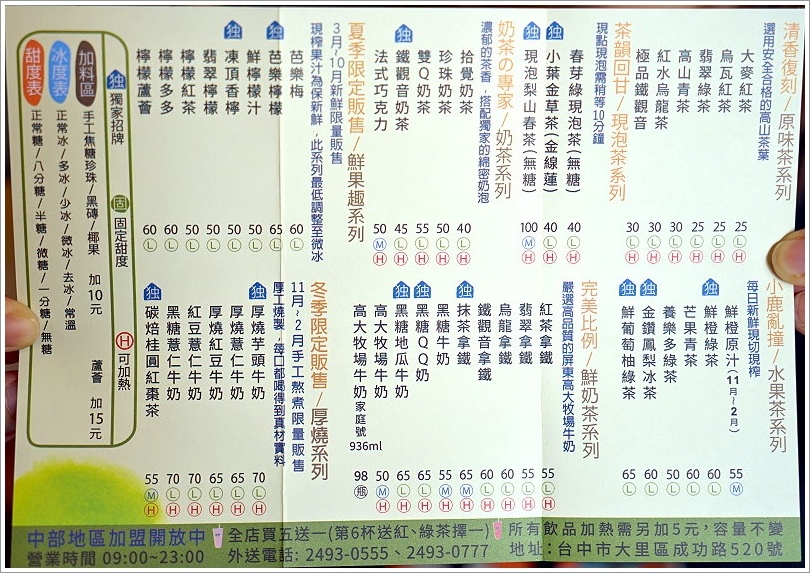 清香復刻/原味茶系列
選用安全合格的高山茶葉
大麥紅茶 25 L H
烏瓦紅茶 25 L H
翡翠綠茶 25 L H
高山青茶 30 L H
紅水烏龍茶 30 L H
極品鐵觀音 30 L H
茶韻回甘/現泡茶系列
現點現泡需稍等10分鐘
春芽綠現泡茶(無糖) 40 L H
独 小葉金草茶(金線蓮) 40 L H
独 現泡梨山春茶(無糖) 100 M H
奶茶の專家/奶茶系列
濃郁的茶香,搭配獨家的綿密奶泡
拾覺奶茶 40 L H
珍珠奶茶 50 L H
雙Q奶茶 55 L H
独 鐵觀音奶茶 45 L H
法式巧克力 50 M H
夏季限定販售/鮮果趣系列
3月~10月新鮮限量販售
現榨果汁為保新鮮,此系列最低調整至微冰
芭樂梅 60 L
独 芭樂檸檬 65 L
鮮檸檬汁 50 L
独 凍頂香檸 50 L
翡翠檸檬 50 L
檸檬紅茶 50 L
檸檬多多 60 L
檸檬蘆薈 60 L
小鹿亂撞/水果茶系列
每日新鮮現切現榨
鮮橙原汁(11月~2月) 55 M
独 鮮橙綠茶 60 L
芒果青茶 60 L
養樂多綠茶 50 L
独 金鑽鳳梨冰茶 60 L
独 鮮葡萄柚綠茶 65 L
完美比例/鮮奶茶系列
嚴選高品質的屏東高大牧場牛奶
紅茶拿鐵 55 L H
翡翠拿鐵 55 L H
烏龍拿鐵 60 L H
鐵觀音拿鐵 60 L H
独 抹茶拿鐵 65 M H
黑糖牛奶 55 M H
独 黑糖QQ奶 65 L H
独 黑糖地瓜牛奶 65 L H
高大牧場牛奶 50 M H
高大牧場牛奶家庭號 936ml 98 瓶
冬季限定販售/厚燒系列
11月~2月手工熬煮限量販售
厚工燒製,每口都喝得到真材實料
独 厚燒芋頭牛奶 70 L H
厚燒薏仁牛奶 65 L H
厚燒紅豆牛奶 65 L H
紅豆薏仁牛奶 70 L H
黑糖薏仁牛奶 70 L H
独 碳焙桂圓紅棗茶 55 M H
独 獨家招牌 固 固定甜度 H 可加熱
加料區 手工焦糖珍珠/黑磚/椰果 加10元 蘆薈 加15元
冰度表 正常冰/多冰/少冰/微冰/去冰/常溫
甜度表 正常糖/八分糖/半糖/微糖/一分糖/無糖
中部地區加盟開放中
營業時間 09:00~23:00
全店買五送一(第6杯送紅、綠茶擇一)
外送電話: 2493-0555、2493-0777
所有飲品加熱需另加5元,容量不變
地址: 台中市大里區成功路520號